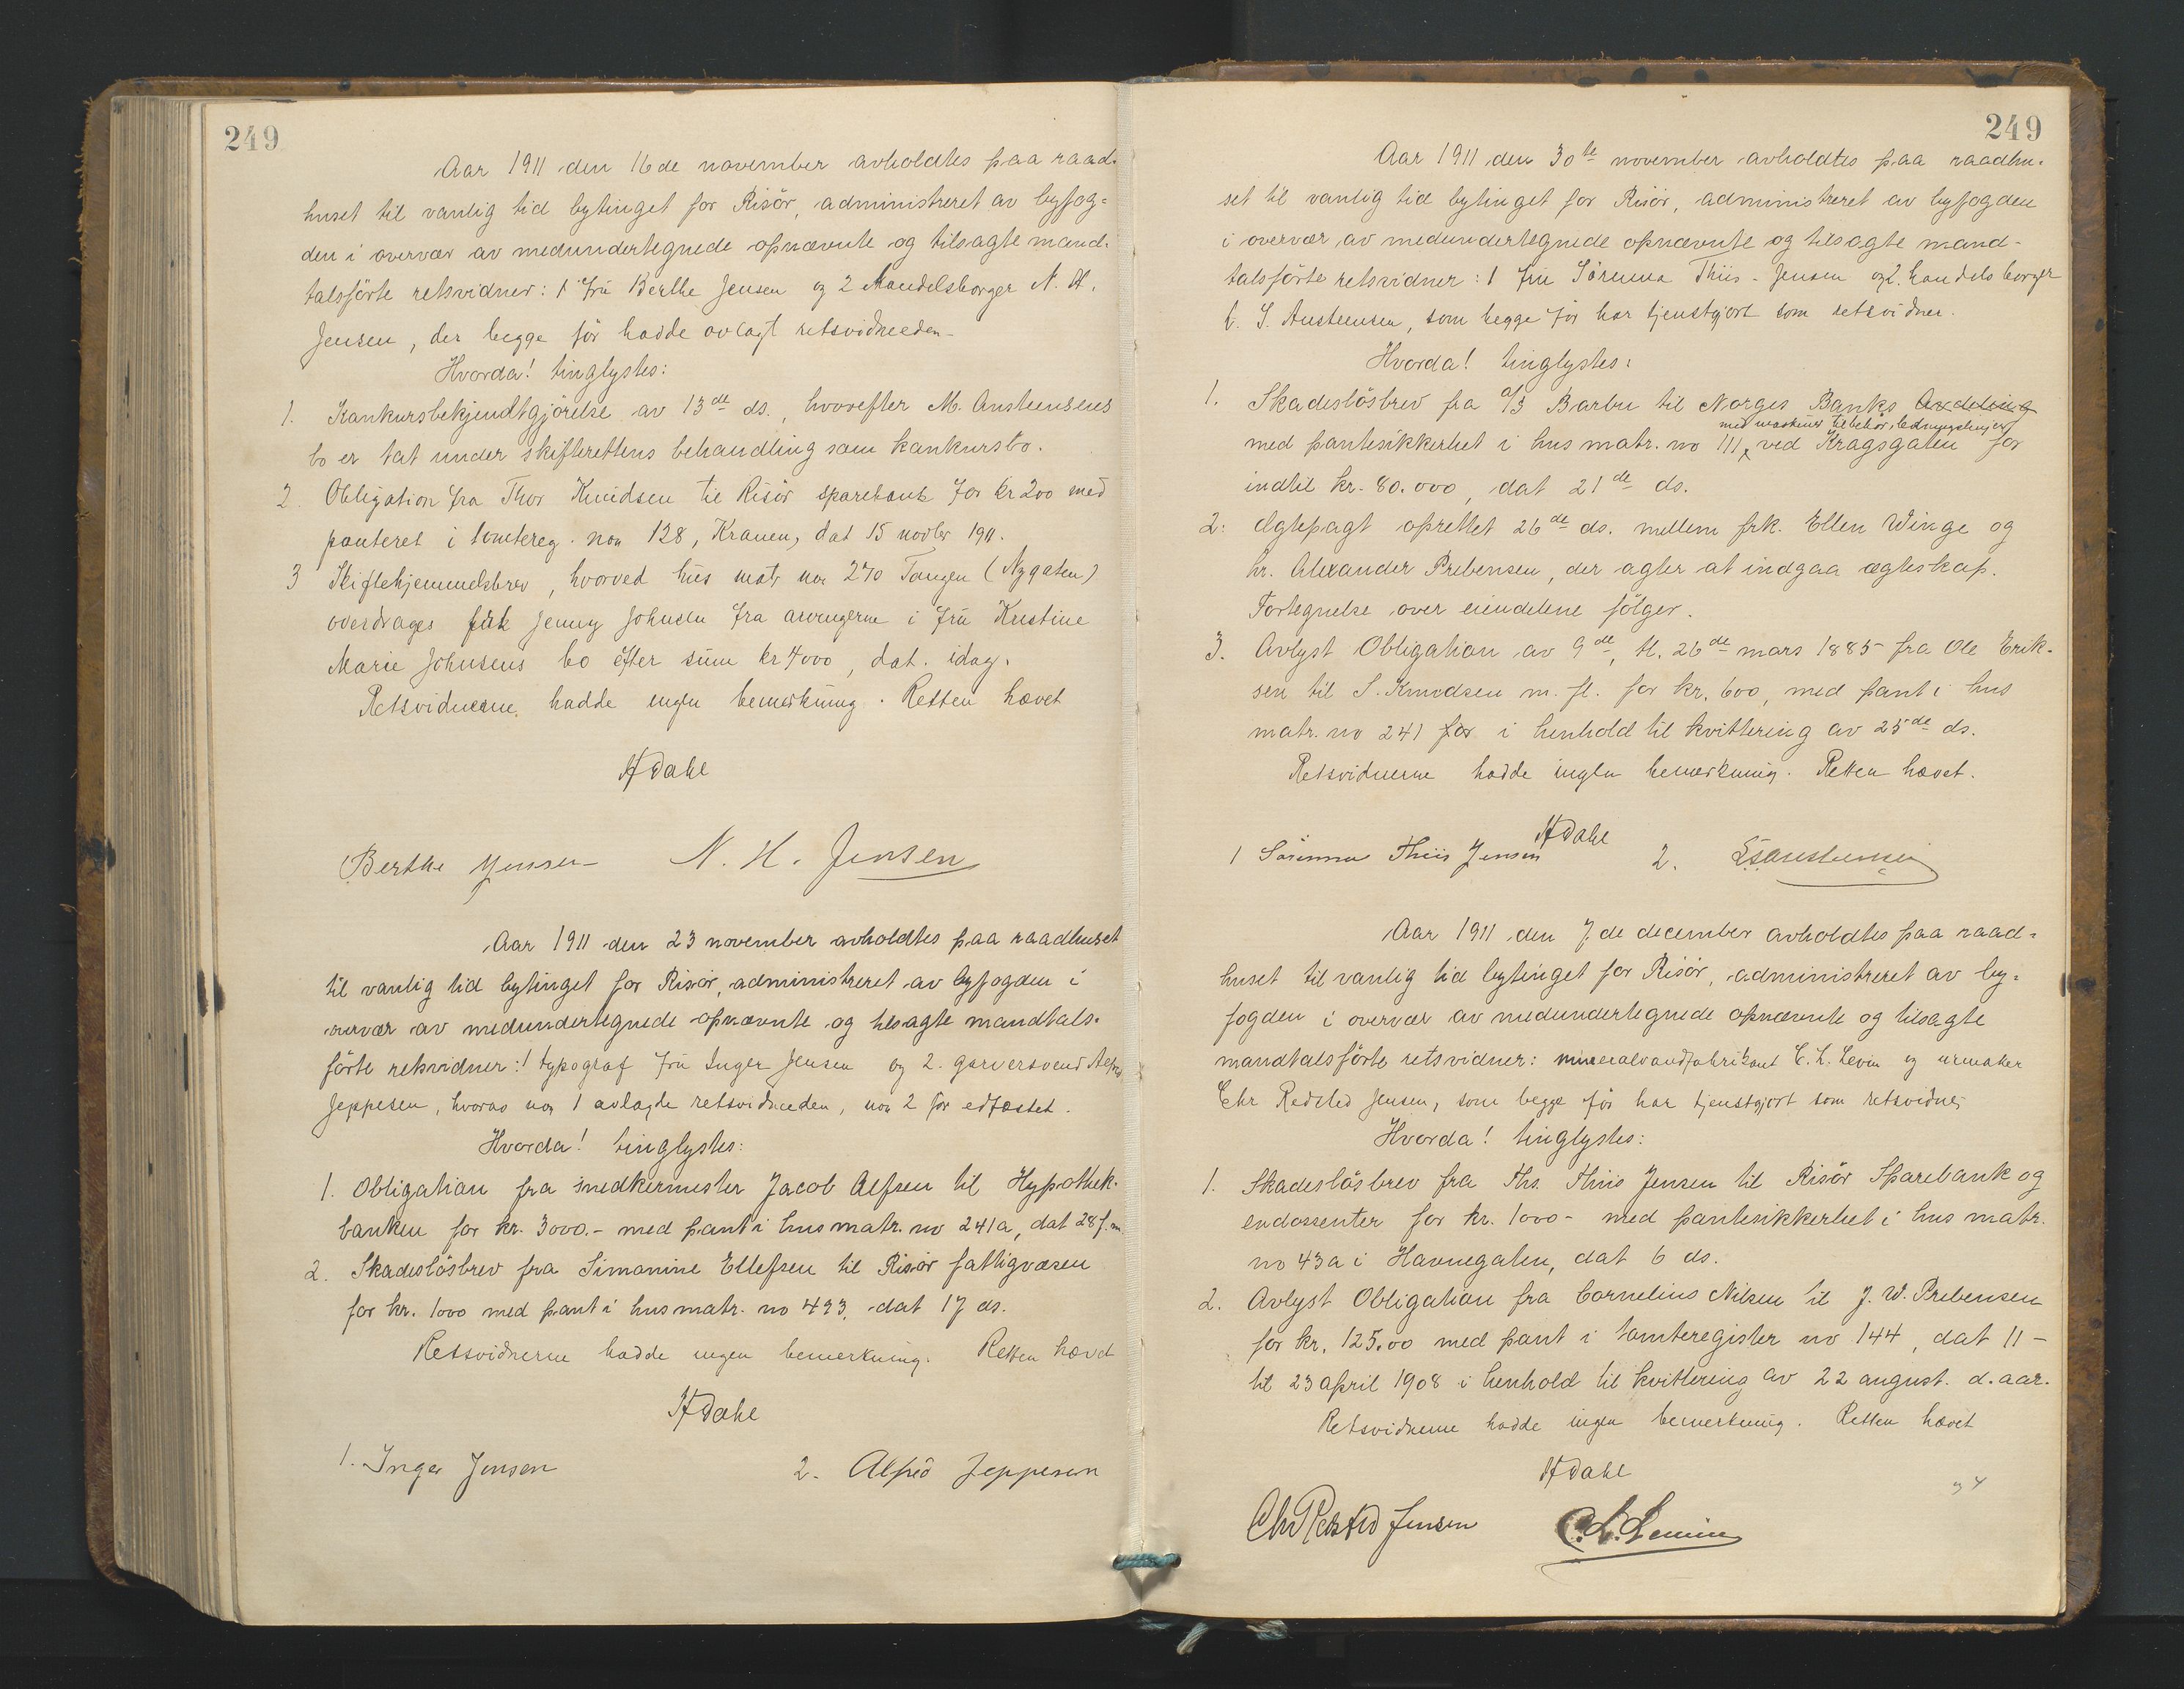 249
Aar 1911 den 16de november avholdtes paa raad-
huset til vanlig tid bytinget for Risör, administreret av byfog=
den i overvær av medundertegnede opnævnte og tilsagte mand-
talsförte retsvidner: 1 Fru Berthe Jensen og 2 Handelsborger N. H.
Jensen, der begge för hadde avlagt retsvidneeden -
Hvorda! tinglystes:
1. Konkursbekjendtgjörelse av 13de ds., hvorefter M. Ansteensens
bo er tat under skifterettens behandling som konkursbo.
2. Obligation fra Thor Knudsen til Risör sparebank for kr 200 med
panteret i tomtereg. no 128, Kranen, dat 15 novbr 1911.
3 Skiftehjemmelsbrev, hvorved hus matr no 270 Tangen (Nygaten)
overdrages frk Jenny Johnsen fra arvingerne i Fru Kristine
Marie Johnsens bo efter sum kr 4000, dat. idag.
Retsvidnerne hadde ingen bemerkning. Retten hævet
H Dahl
Berthe Jensen N. H. Jensen
Aar 1911 den 23 november avholdtes paa raadhuset
til vanlig tid bytinget for Risör, administreret av byfogden i
overvær av medundertegnede opnævnte og tilsagte mandtals-
förte retsvidner: 1 typograf Fru Inger Jensen og 2. garversvend Alfred
Jeppesen, hvorav no 1 avlagde retsvidneeden, no 2 för edfæstet.
Hvorda! tinglystes:
1. Obligation fra snedkermester Jacob Alfsen til Hypothek-
banken for kr. 3000.- med pant i hus matr. no 241a, dat 28 f. m.
2. Skadeslösbrev fra Simonine Ellefsen til Risör fattigvæsen
for kr. 1000 med pant i hus matr. no 493, dat 17 ds.
Retsvidnerne hadde ingen bemerkning. Retten hævet
H Dahl
1. Inger Jensen 2. Alfred Jeppesen
249
Aar 1911 den 30te november avholdtes paa raadhu-
set til vanlig tid bytinget for Risör, administreret av byfogden
i overvær av medundertegnede opnævnte og tilsagte mand-
talsförte retsvidner: 1 Fru Sörinna Thiis-Jensen og 2. handelsborger
S. Austeensen, som begge för har tjenstgjort som retsvidner.
Hvorda! tinglystes:
1. Skadeslösbrev fra A/S Barbu til Norges Banks Avdeling
med maskiner tilbehör, ledninger
med pantesikkerhet i hus matr. no 111, ved Kragsgaten for
indtil kr. 80.000, dat 21de ds.
2: Ægtepagt oprettet 26de ds. mellem frk. Ellen Winge og
hr. Alexander Prebensen, der agter at indgaa ægteskap.
Fortegnelse over eiendelene fölger.
3. Avlyst Obligation av 9de, tl. 26de mars 1885 fra Ole Erik-
sen til S. Knudsen m. fl. for kr. 600, med pant i hus
matr. no 241 for i henhold til kvittering av 25de ds.
Retsvidnerne hadde ingen bemerkning. Retten hævet.
H Dahl
1 Sörinna Thiis Jensen 2.
Aar 1911 den 7de december avholdtes paa raad=
huset til vanlig tid bytinget for Risör, administreret av by=
fogden i overvær av medundertegnede opnævnte og tilsagte
mandtalsförte retsvidner: mineralvandfabrikant C. L. Levin og urmaker
Chr Redsted Jensen, som begge för har tjenstgjort som retsvidner
Hvorda! tinglystes:
1. Skadeslösbrev fra Ths. Thiis Jensen til Risör Sparebank og
endossenter for kr. 1000- med pantesikkerhet i hus matr.
no 43a i Havnegaten, dat 6 ds.
2. Avlyst Obligation fra Cornelius Nilsen til J. W. Prebensen
for kr. 125.00 med pant i tomteregister no 144, dat 11 -
tl 23 april 1908 i henhold til kvittering av 22 august. d. aar.
Retsvidnerne hadde ingen bemerkning. Retten hævet
H Dahl
Chr Redsted Jensen C. L. Levin